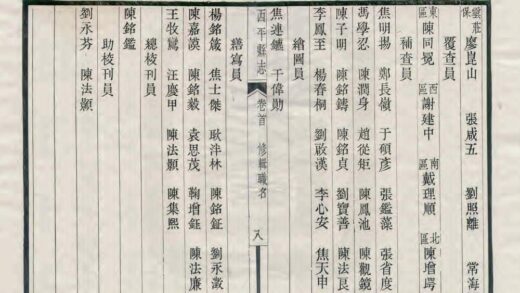 雲莊保 廖崑山 張咸五 劉照離 常海
覆查員
東區 陳同冕 西區 謝建中 南區 戴理順 北區 陳增堮
補查員
焦明揚 鄭長嶺 于碩彥 張鑑藻 張省度
馮學忍 陳潤身 趙從矩 陳鳳池 陳觀鏡
陳子明 陳銘鑄 陳銘貞 劉寶善 陳法良
李鳳王 楊春桐 劉啟漢 李心安 焦天申
繪圖員
焦連鑣 于偉勛
西平縣志 卷首 修輯職名 八
繕寫員
楊銘箴 焦士傑 耿泮林 陳銘鉦 劉永澂
陳嘉謨 陳銘毅 袁思茂 鞠增鈺 陳法廉
王牧鸞 汪慶甲 陳法顥 陳集熙
總校刊員
陳銘鑑
助校刊員
劉永芬 陳法顥